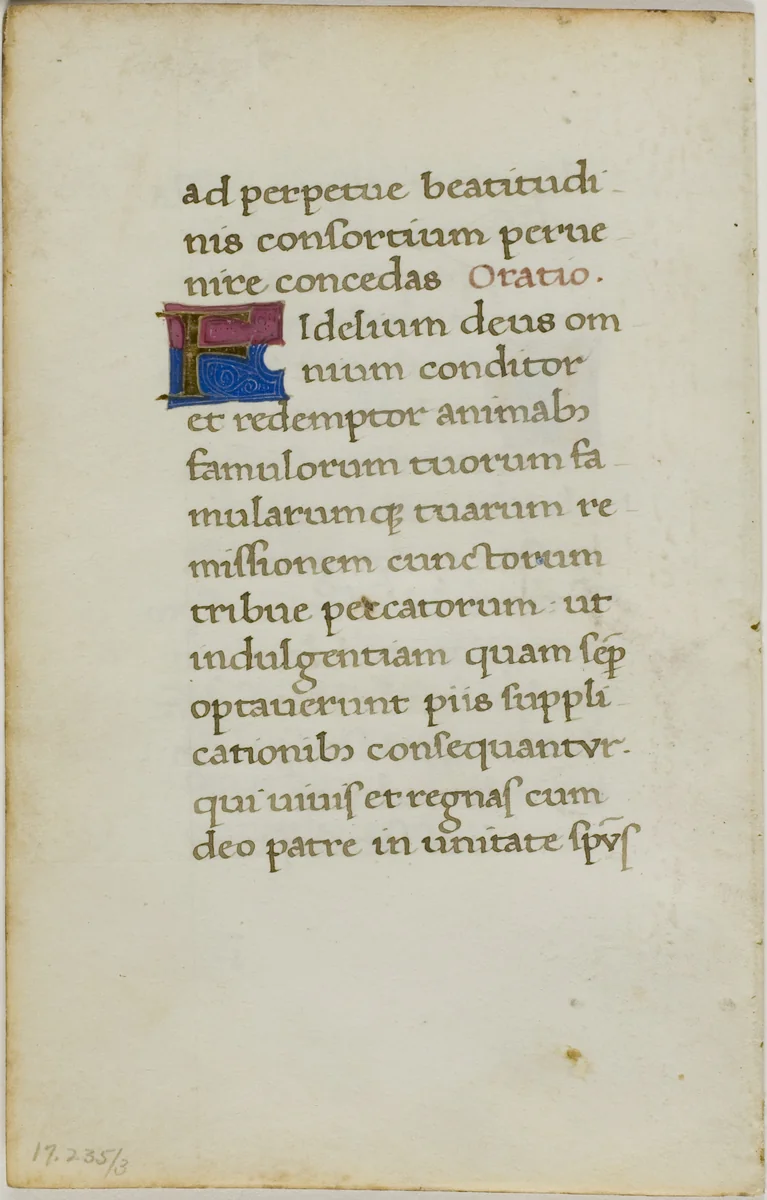 ad perpetue beatitudi
nis conſortium perue
nire concedas Oratio.
FIdelium deus om
nium conditor
et redemptor animabꝫ
famulorum tuorum fa
mularumqꝫ tuarum re
miſſionem cunctorum
tribue peccatorum · ut
indulgentiam quam ſēp
optauerunt piis ſuppli
cationibꝫ conſequantvr.
qui uiuiſ et regnaſ cum
deo patre in unitate ſpv̄ſ
17.235/3